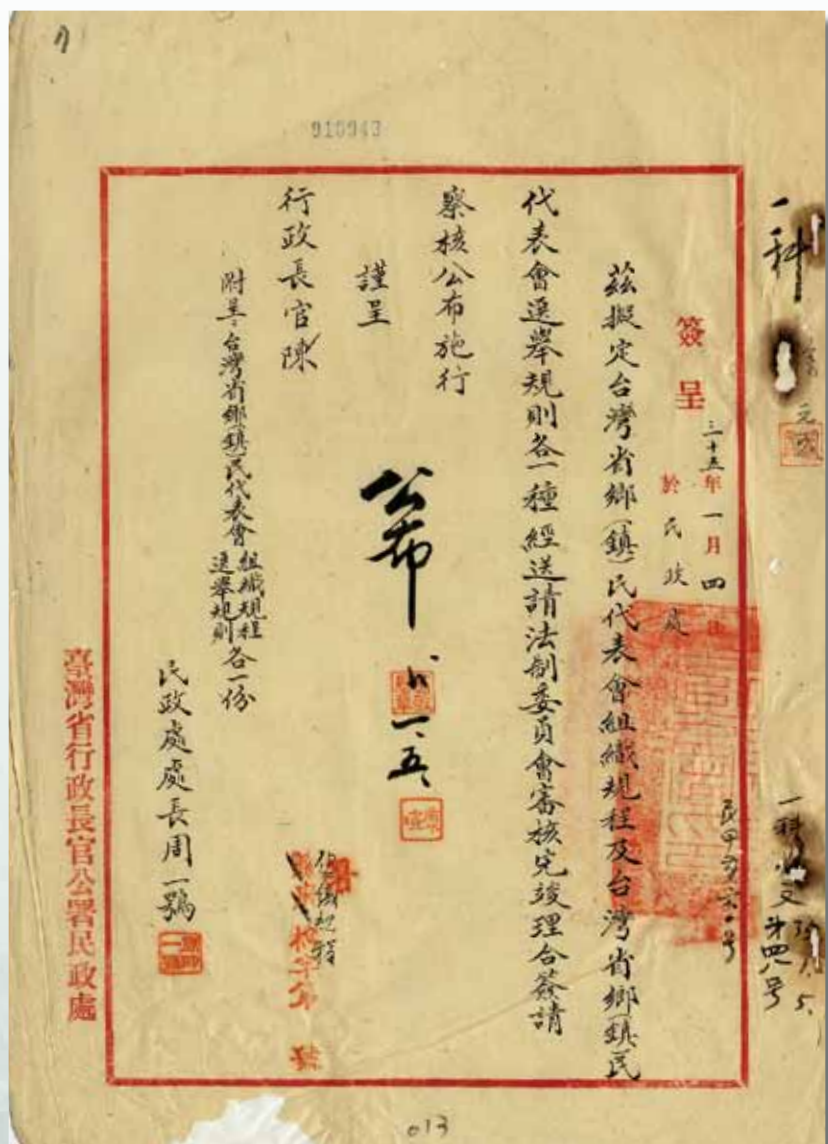 910943
一科
簽呈
三十五年一月四日
於民政處
茲擬定台灣省鄉(鎮)民代表會組織規程及台灣省鄉(鎮)民
代表會選舉規則各一種經送請法制委員會審核完竣理合簽請
察核公布施行
謹呈
行政長官陳
附呈台灣省鄉(鎮)民代表會組織規程選舉規則各一份
公布
一、五、
民政處處長周一鶚
臺灣省行政長官公署民政處
013